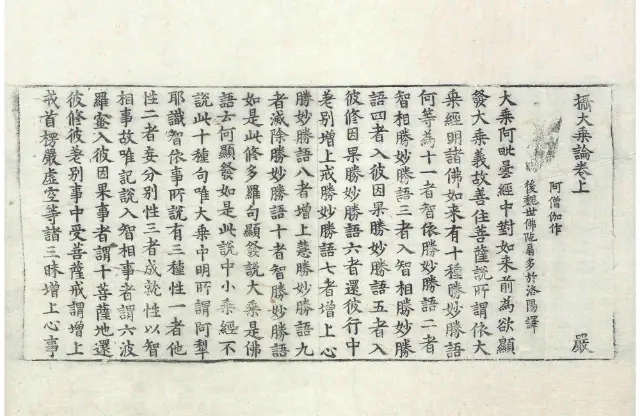 攝大乘論卷上 嚴
阿僧伽作
後魏世佛陁扇多於洛陽譯
大乘阿毗曇經中對如來前為欲顯
發大乘義故善住菩薩說所謂依大
乘經明諸佛如來有十種勝妙勝語
何等為十一者智依勝妙勝語二者
智相勝妙勝語三者入智相勝妙勝
語四者入彼因果勝妙勝語五者入
彼修因果勝妙勝語六者還彼行中
差別增上戒勝妙勝語七者增上心
勝妙勝語八者增上慧勝妙勝語九
者滅除勝妙勝語十者智勝妙勝語
如是此修多羅句顯發說大乘是佛
語云何顯發如是此說中小乘經不
說此十種句唯大乘中明所謂阿犁
耶識智依事所說有三種性一者他
性二者妄分別性三者成就性以智
相事故唯記說入智相事者謂六波
羅蜜入彼因果事者謂十菩薩地還
彼修彼差別事中受菩薩戒謂增上
戒首楞嚴虛空等諸三昧增上心事